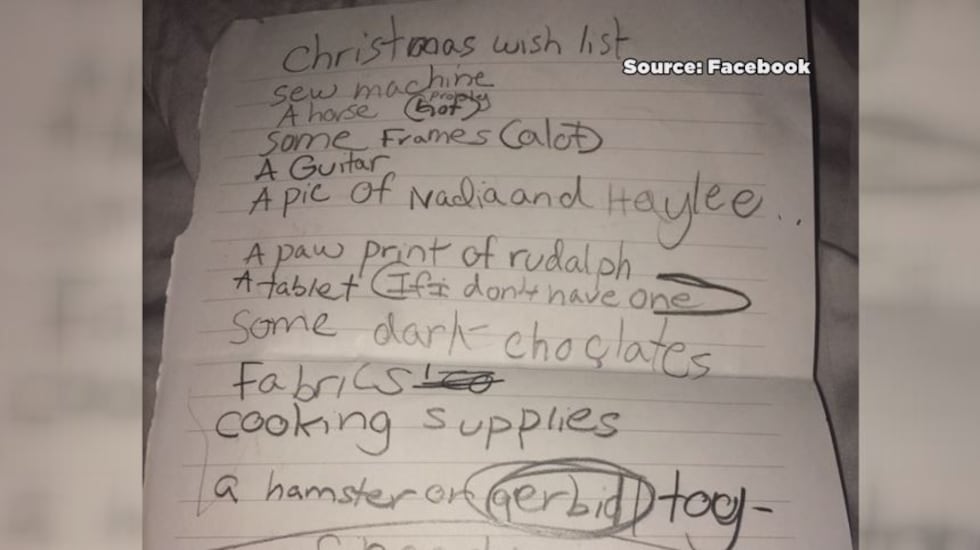 Christmas wish list
Source: Facebook
sew machine
A horse (not)
some Frames (alot)
A Guitar
A pic of Nadia and Haylee..
A paw print of rudalph
A tablet (If i don't have one)
Some dark choclates
Fabrics
cooking supplies
a hamster or (gerbid) toy-